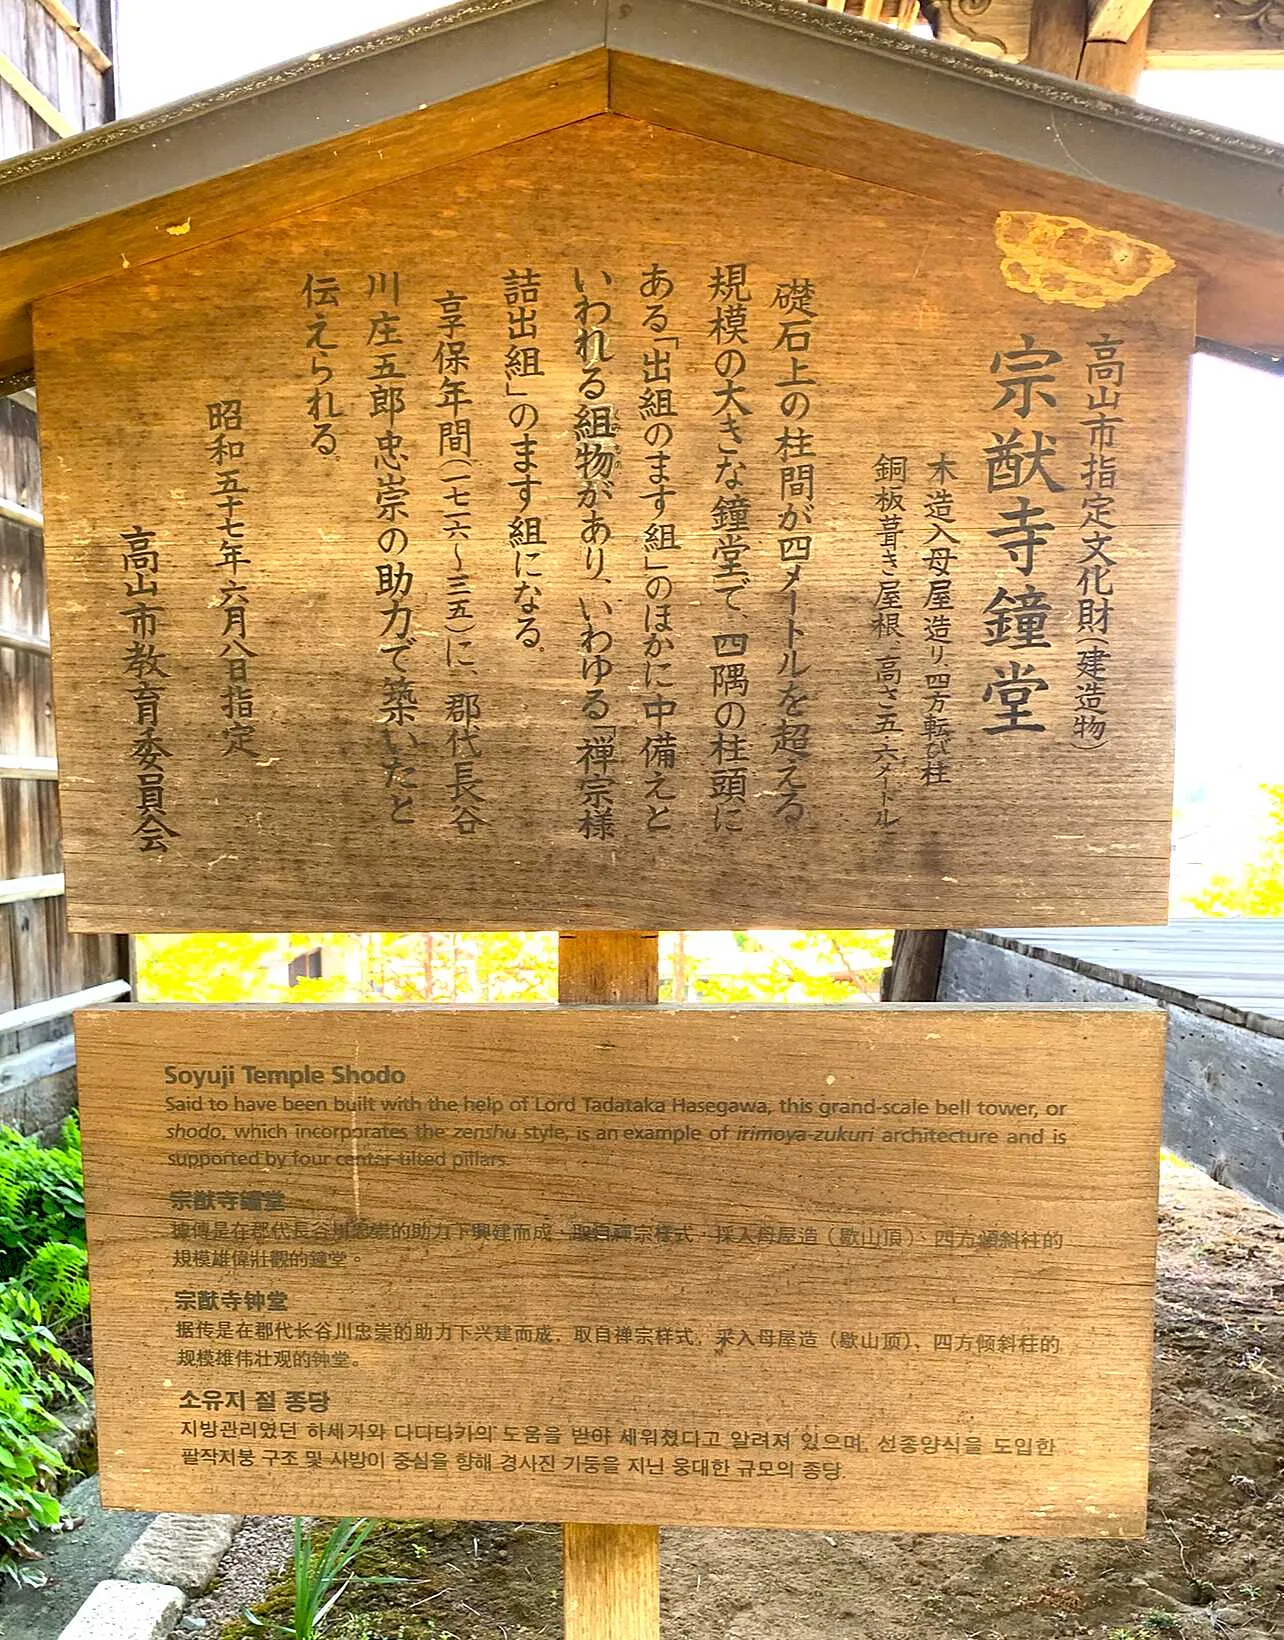 高山市指定文化財(建造物)
宗猷寺鐘堂
木造入母屋造り、四方転び柱
銅板葺き屋根、高さ五・六メートル
礎石上の柱間が四メートルを超える
規模の大きな鐘堂で、四隅の柱頭に
ある「出組のます組」のほかに中備えと
いわれる組物があり、いわゆる「禅宗様
詰出組」のます組になる。
享保年間(一七一六〜三五)に、郡代長谷
川庄五郎忠崇の助力で築いたと
伝えられる。
昭和五十七年六月八日指定
高山市教育委員会
Soyuji Temple Shodo
Said to have been built with the help of Lord Tadataka Hasegawa, this grand-scale bell tower, or
shodo, which incorporates the zenshu style, is an example of irimoya-zukuri architecture and is
supported by four center-tilted pillars.
宗猷寺鐘堂
據傳是在郡代長谷川忠崇的助力下興建而成，取自禪宗樣式，採入母屋造（歇山頂）、四方傾斜柱的
規模雄偉壯觀的鐘堂。
宗猷寺钟堂
据传是在郡代长谷川忠崇的助力下兴建而成，取自禅宗样式，采入母屋造（歇山顶）、四方倾斜柱的
规模雄伟壮观的钟堂。
소유지 절 종당
지방관리였던 하세가와 다다타카의 도움을 받아 세워졌다고 알려져 있으며, 선종양식을 도입한
팔작지붕 구조 및 사방이 중심을 향해 경사진 기둥을 지닌 웅대한 규모의 종당.